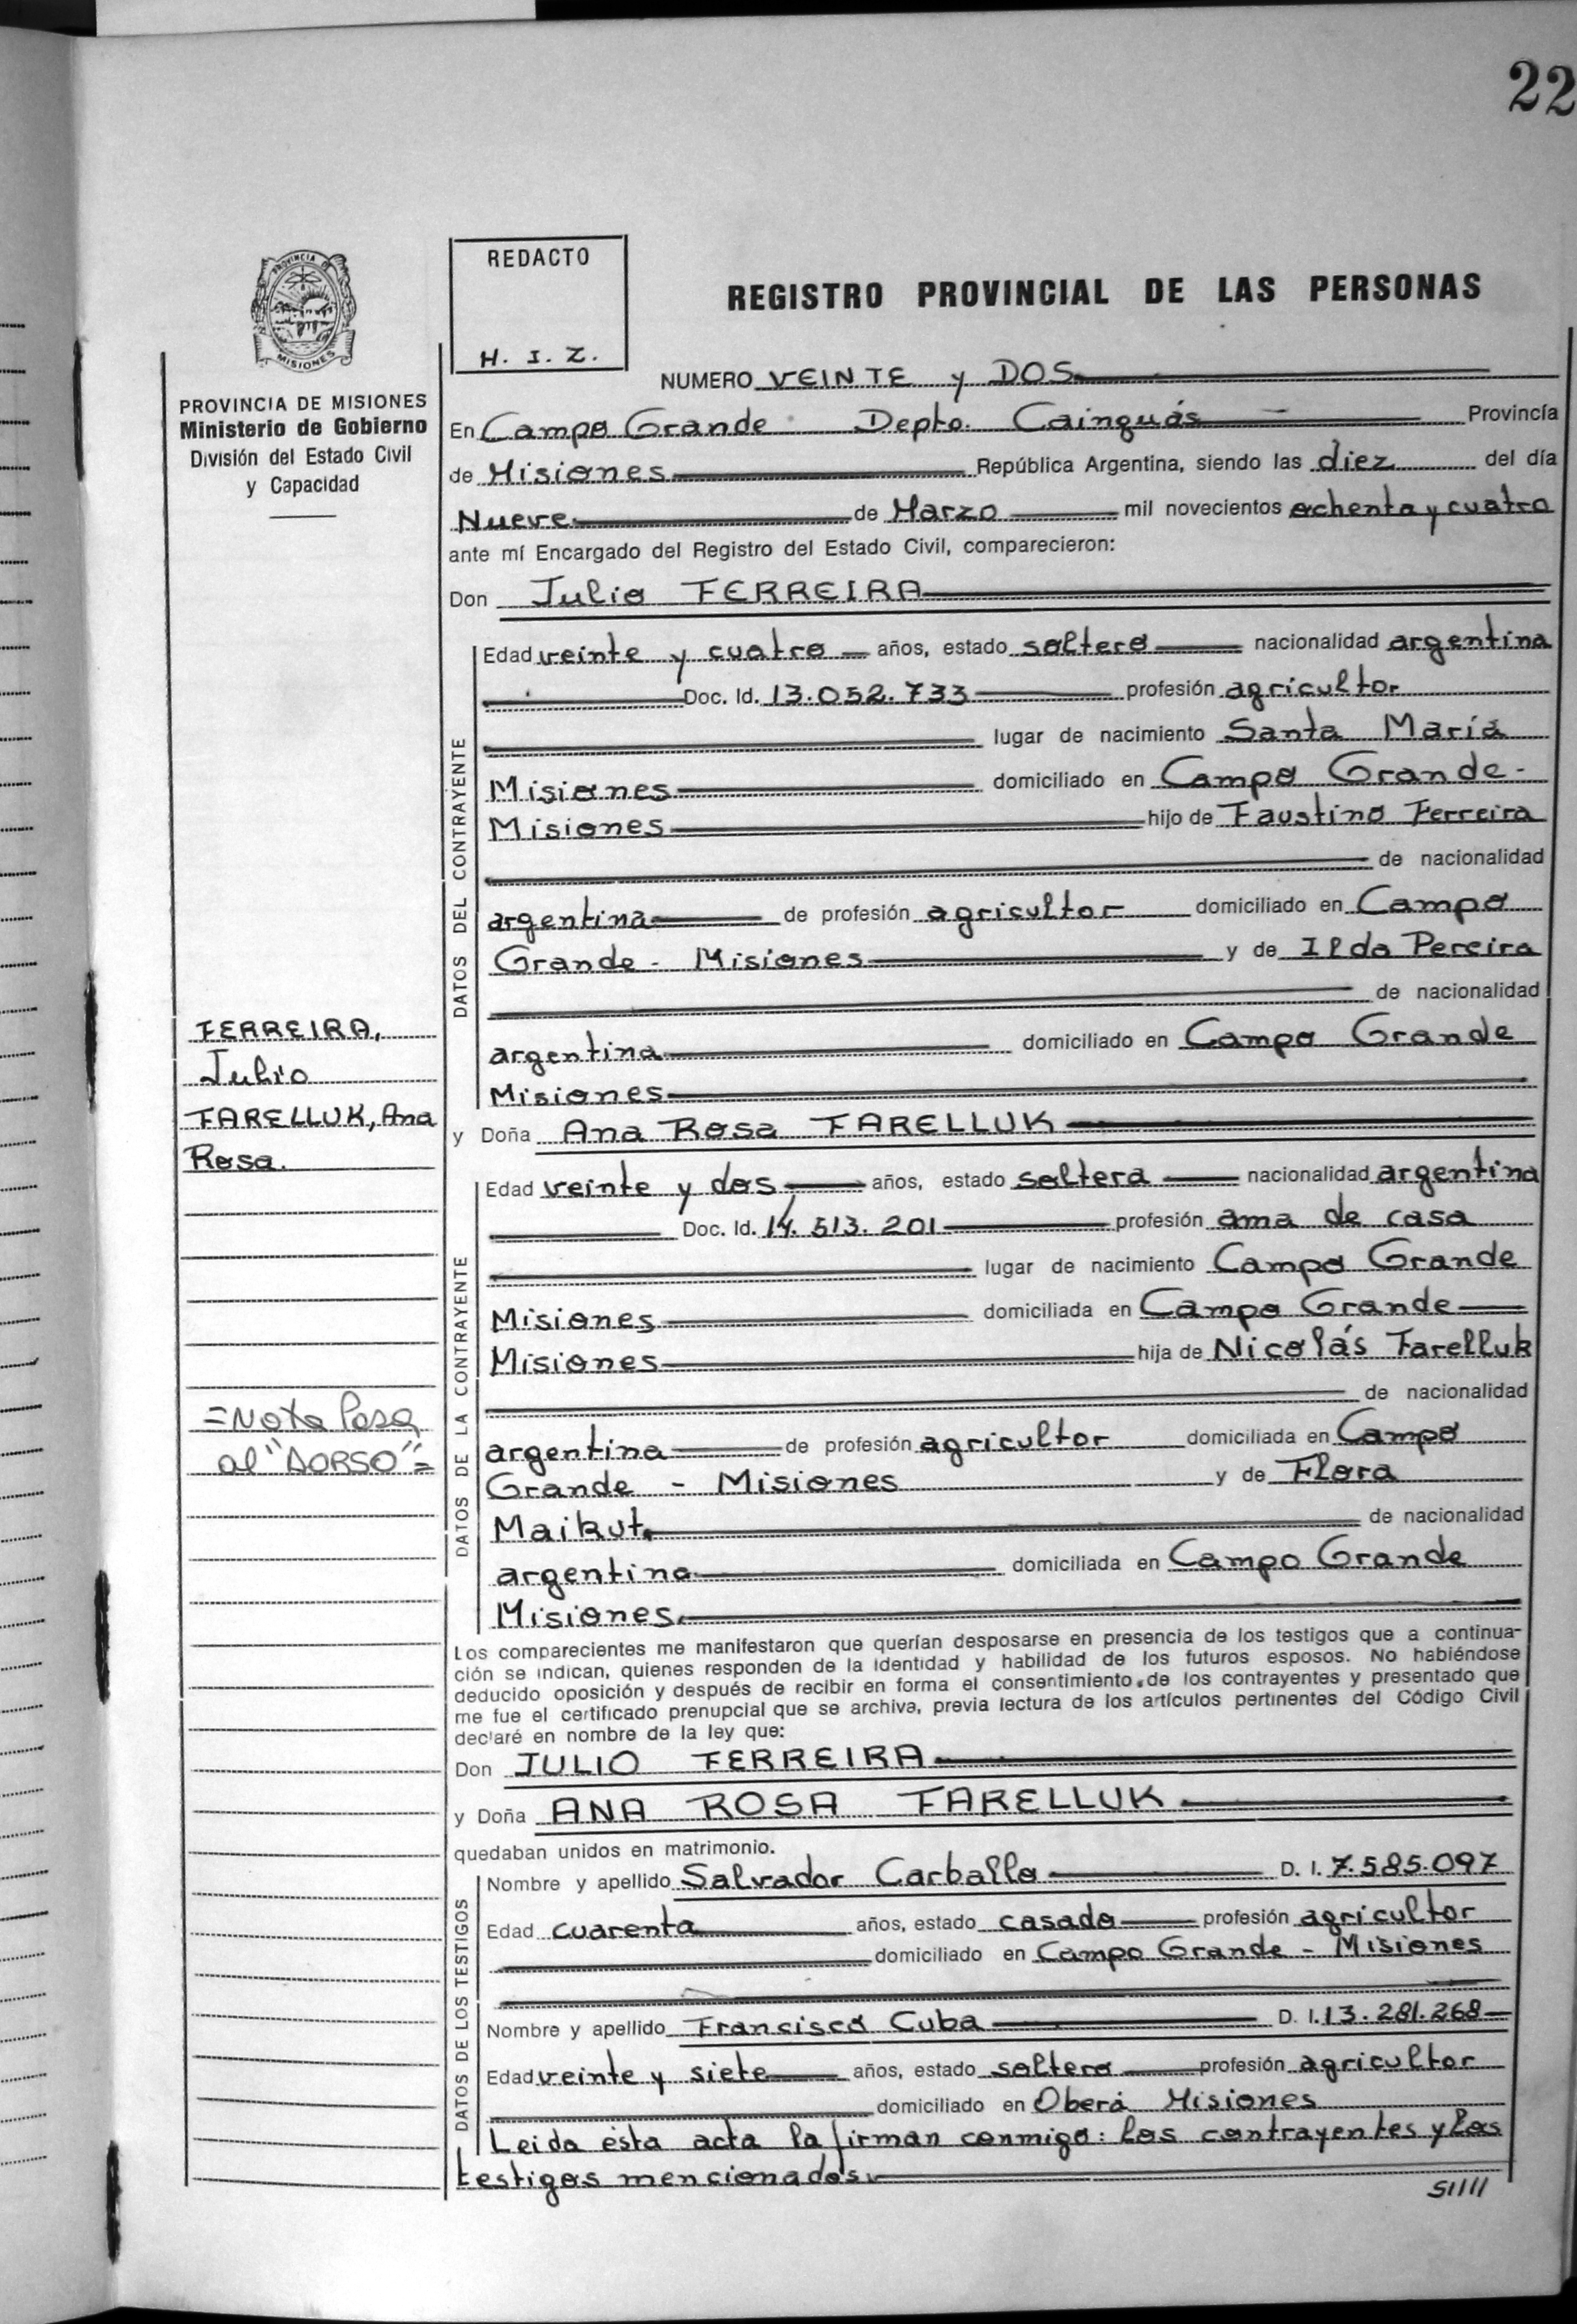 22
PROVINCIA DE
MISIONES
REDACTO
H. I. Z.
REGISTRO PROVINCIAL DE LAS PERSONAS
PROVINCIA DE MISIONES
Ministerio de Gobierno
División del Estado Civil
y Capacidad
NUMERO VEINTE y DOS
En Campo Grande Depto. Cainguás Provincía
de Misiones República Argentina, siendo las diez del día
Nueve de Marzo mil novecientos ochenta y cuatro
ante mí Encargado del Registro del Estado Civil, comparecieron:
Don Julio FERREIRA
DATOS DEL CONTRAYENTE
Edad veinte y cuatro años, estado soltero nacionalidad argentina
Doc. Id. 13.052.733 profesión agricultor
lugar de nacimiento Santa María
Misiones domiciliado en Campo Grande -
Misiones hijo de Faustino Ferreira
de nacionalidad
argentina de profesión agricultor domiciliado en Campo
Grande - Misiones y de Ilda Pereira
de nacionalidad
argentina domiciliado en Campo Grande
Misiones
FERREIRA,
Julio
FARELLUK, Ana
Rosa.
y Doña Ana Rosa FARELLUK
DATOS DE LA CONTRAYENTE
Edad veinte y dos años, estado soltera nacionalidad argentina
Doc. Id. 14.513.201 profesión ama de casa
lugar de nacimiento Campo Grande
Misiones domiciliada en Campo Grande
Misiones hija de Nicolás Farelluk
de nacionalidad
argentina de profesión agricultor domiciliada en Campo
Grande - Misiones y de Flora
Maikut de nacionalidad
argentina domiciliada en Campo Grande
Misiones
=Nota Pasa
al "DORSO"=
Los comparecientes me manifestaron que querían desposarse en presencia de los testigos que a continua-
ción se indican, quienes responden de la identidad y habilidad de los futuros esposos. No habiéndose
deducido oposición y después de recibir en forma el consentimiento de los contrayentes y presentado que
me fue el certificado prenupcial que se archiva, previa lectura de los artículos pertinentes del Código Civil
declaré en nombre de la ley que:
Don JULIO FERREIRA
y Doña ANA ROSA FARELLUK
quedaban unidos en matrimonio.
DATOS DE LOS TESTIGOS
Nombre y apellido Salvador Carballo D. I. 7.585.097
Edad cuarenta años, estado casado profesión agricultor
domiciliado en Campo Grande - Misiones
Nombre y apellido Francisco Cuba D. I. 13.281.268
Edad veinte y siete años, estado soltero profesión agricultor
domiciliado en Oberá Misiones
Leida ésta acta la firman conmigo: los contrayentes y los
testigos mencionados.